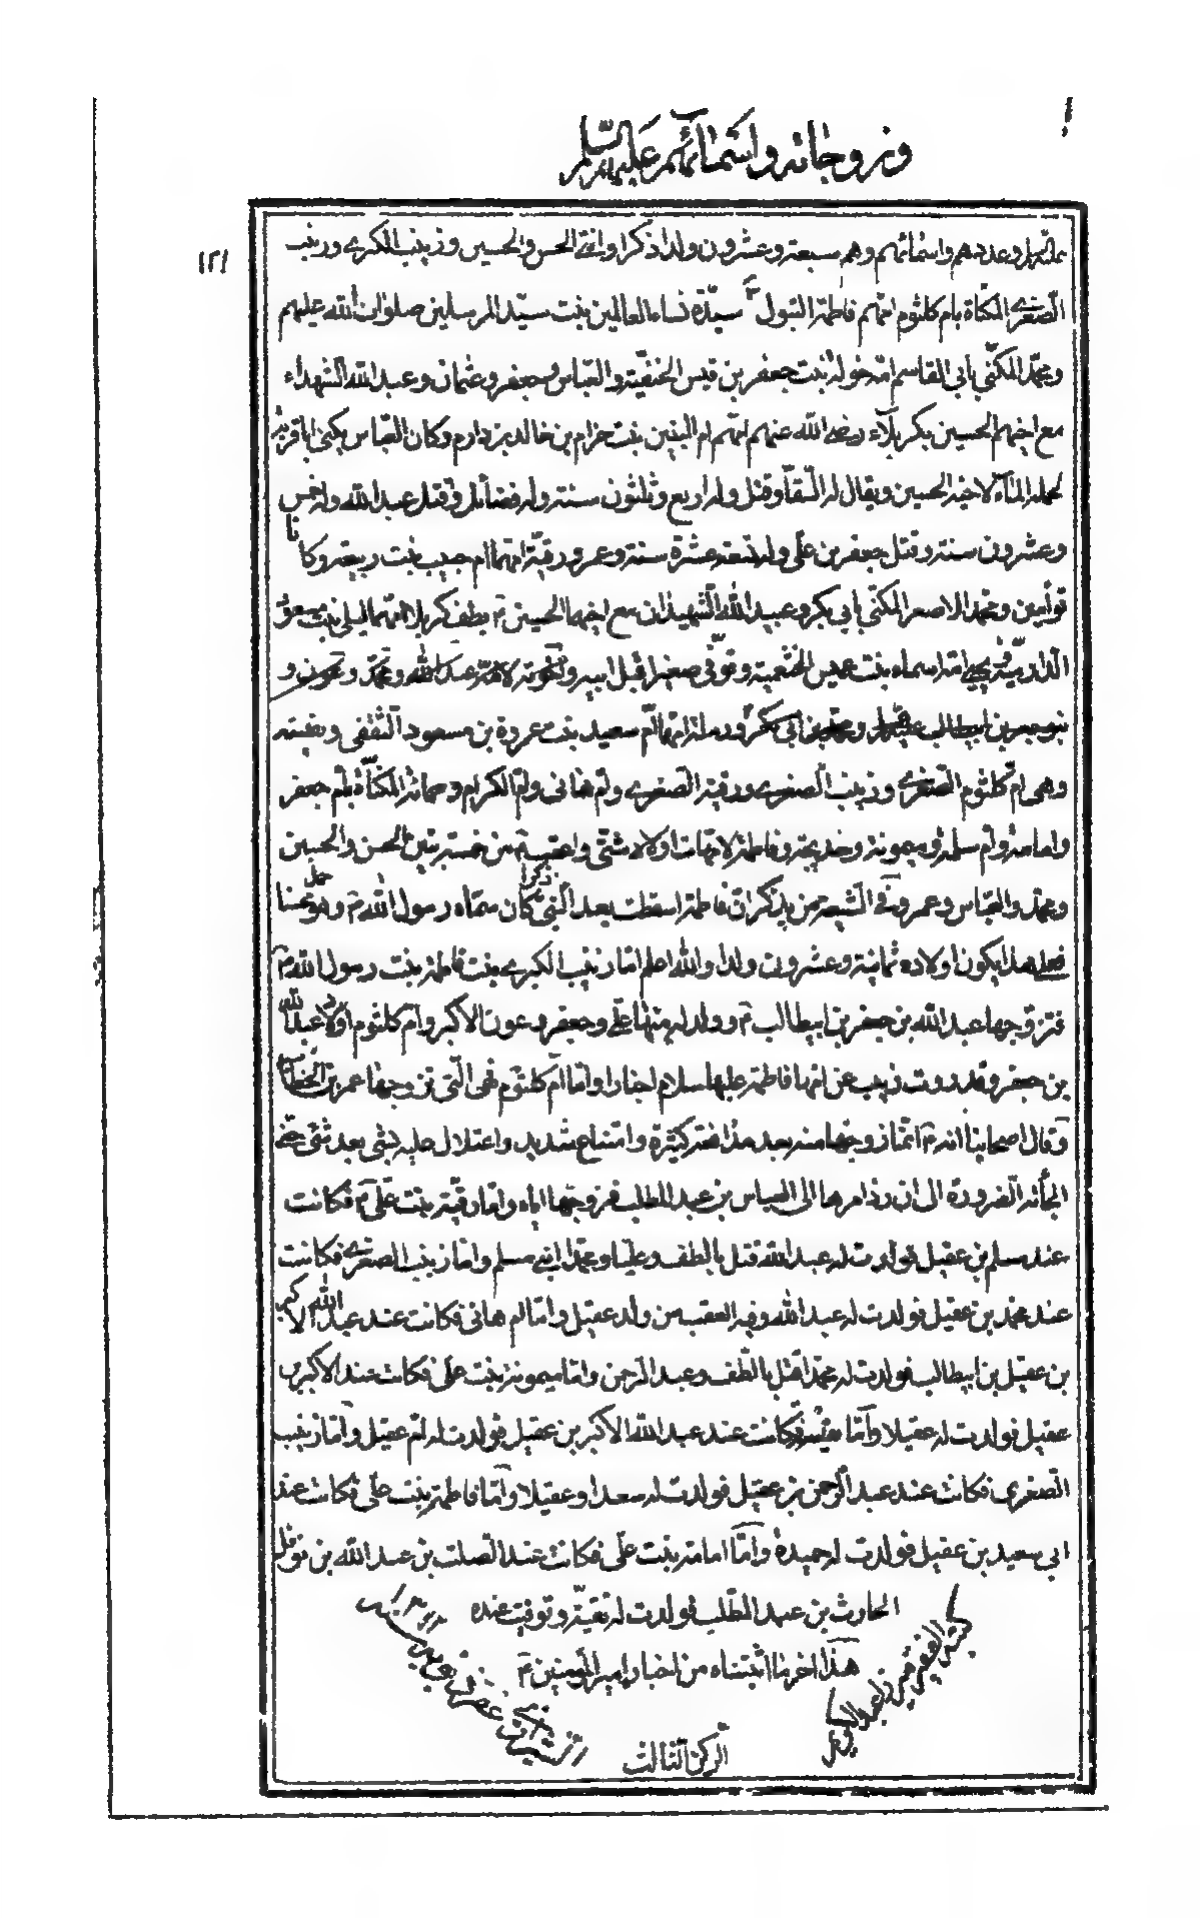 وزوجاته واسمائهم عليهم السلم
١٢١
وعددهم واسمائهم وهم سبعة وعشرون ولدا ذكرا وانثى الحسن والحسين وزينب الكبرى وزينب
الصغرى المكناة بام كلثوم امهم فاطمة البتول سيدة نساء العالمين بنت سيد المرسلين صلوات الله عليهم
ومحمد المكنى بابي القاسم امه خولة بنت جعفر بن قيس الحنفية والعباس وجعفر وعثمان وعبد الله الشهداء
مع اخيهم الحسين بكربلاء رضي الله عنهم امهم ام البنين بنت حزام بن خالد بن دارم وكان العباس يكنى ابا قربة
لحمله الماء لاخيه الحسين ويقال له السقا وقتل وله اربع وثلثون سنة وله فضائل وقتل عبد الله وله خمس
وعشرون سنة وقتل جعفر بن علي وله تسعة عشرة سنة وعمر ورقية امهما ام حبيب بنت ربيعة وكانا
توأمين ومحمد الاصغر المكنى بابي بكر وعبيد الله الشهيدان مع اخيهما الحسين ع بطف كربلا امهما ليلى بنت مسعود
الدارمية ويحيى امه اسماء بنت عميس الخثعمية وتوفي صغيرا قبل ابيه واخوته لامه عبد الله ومحمد وعون و
بنو جعفر بن ابيطالب ومحمد بن ابي بكر ورملة امها ام سعيد بنت عروة بن مسعود الثقفي ونفيسة
وهي ام كلثوم الصغرى وزينب الصغرى ورقية الصغرى وام هاني وام الكرام وجمانة المكناة بام جعفر
وامامة وام سلمة وميمونة وخديجة وفاطمة لامهات اولاد شتى واعقب ع من خمسة بنين الحسن والحسين
ومحمد والعباس وعمر وفي الشيعة من يذكر ان فاطمة اسقطت بعد النبي ذكرا كان سماه رسول الله ص وهو حمل محسنا
فعلى هذا يكون اولاده ثمانية وعشرون ولدا والله اعلم اما زينب الكبرى بنت فاطمة بنت رسول الله ص
فتزوجها عبد الله بن جعفر بن ابيطالب ع وولد له منها علي وجعفر وعون الاكبر وام كلثوم اولاد عبد الله
بن جعفر وقد روت زينب عن امها فاطمة عليها سلام اخبارا واما ام كلثوم فهي التي تزوجها عمر بن الخطاب
وقال اصحابنا انه ع انما زوجها منه بعد مدافعة كثيرة وامتناع شديد واعتلال عليه بشئ بعد شئ حتى
الجأته الضرورة الى ان رد امرها الى العباس بن عبد المطلب فزوجها اياه واما رقية بنت علي ع فكانت
عند مسلم بن عقيل فولدت له عبد الله قتل بالطف وعليا ومحمدا ابني مسلم واما زينب الصغرى فكانت
عند محمد بن عقيل فولدت له عبد الله وفيه العقب من ولد عقيل واما ام هاني فكانت عند عبد الله الاكبر
بن عقيل بن ابيطالب فولدت له محمدا قتل بالطف وعبد الرحمن واما ميمونة بنت علي فكانت عند الاكبر بن
عقيل فولدت له عقيلا واما نفيسة فكانت عند عبد الله الاكبر بن عقيل فولدت له ام عقيل واما زينب
الصغرى فكانت عند عبد الرحمن بن عقيل فولدت له سعدا وعقيلا واما فاطمة بنت علي فكانت عند
ابي سعيد بن عقيل فولدت له حميدة واما امامة بنت علي فكانت عند الصلت بن عبد الله بن نوفل
الحارث بن عبد المطلب فولدت له نفيسة وتوفيت عنده
هذا اخر ما اثبتناه من اخبار امير المؤمنين ع
الركن الثالث